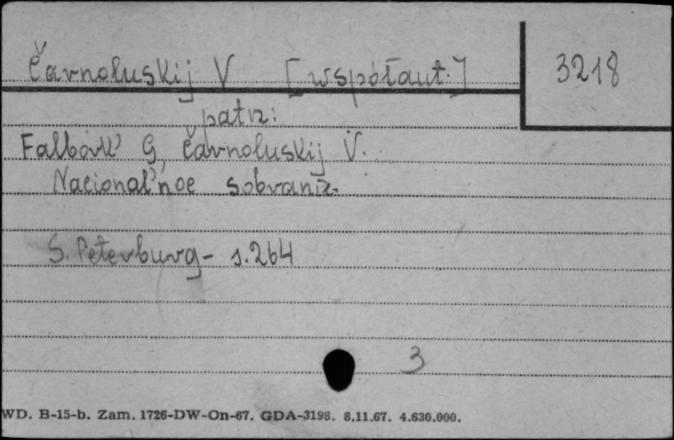 Čarnoluskij V [współaut.]
3218
patrz:
Falbork' G, Čarnoluskij V.
Nacional'noe sobranie.
S. Peterburg - s. 264
3
WD. B-15-b. Zam. 1726-DW-On-67. GDA-3198. 8.11.67. 4.630.000.